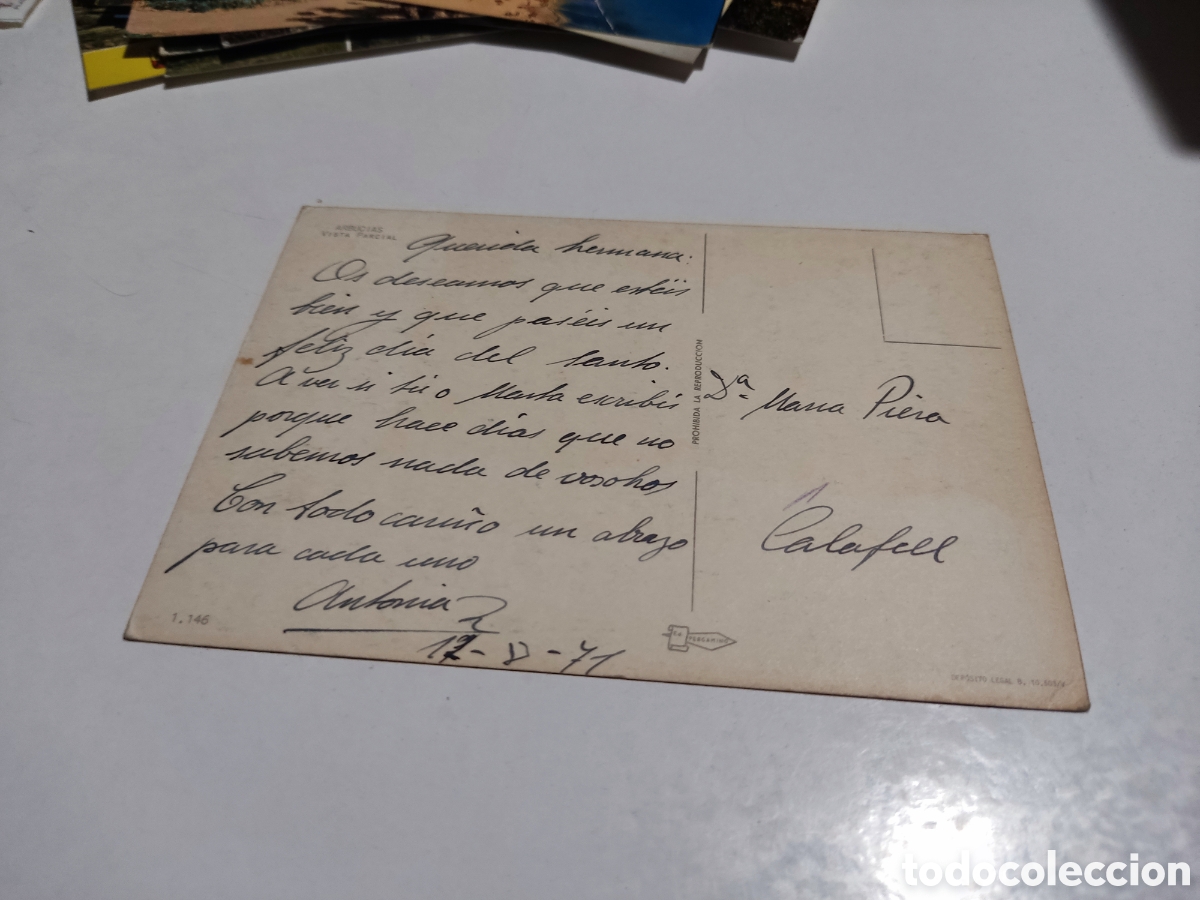 ARBUCIAS
VISTA PARCIAL
Querida hermana:
Os deseamos que estéis
bien y que paséis un
feliz día del santo.
A ver si tú o Marta escribís
porque hace días que no
sabemos nada de vosotros
Con todo cariño un abrazo
para cada uno
Antonia
12-8-71
1.146
PROHIBIDA LA REPRODUCCION
Dª Maria Piera
Calafell
PERGAMINO
DEPÓSITO LEGAL B.
todocoleccion